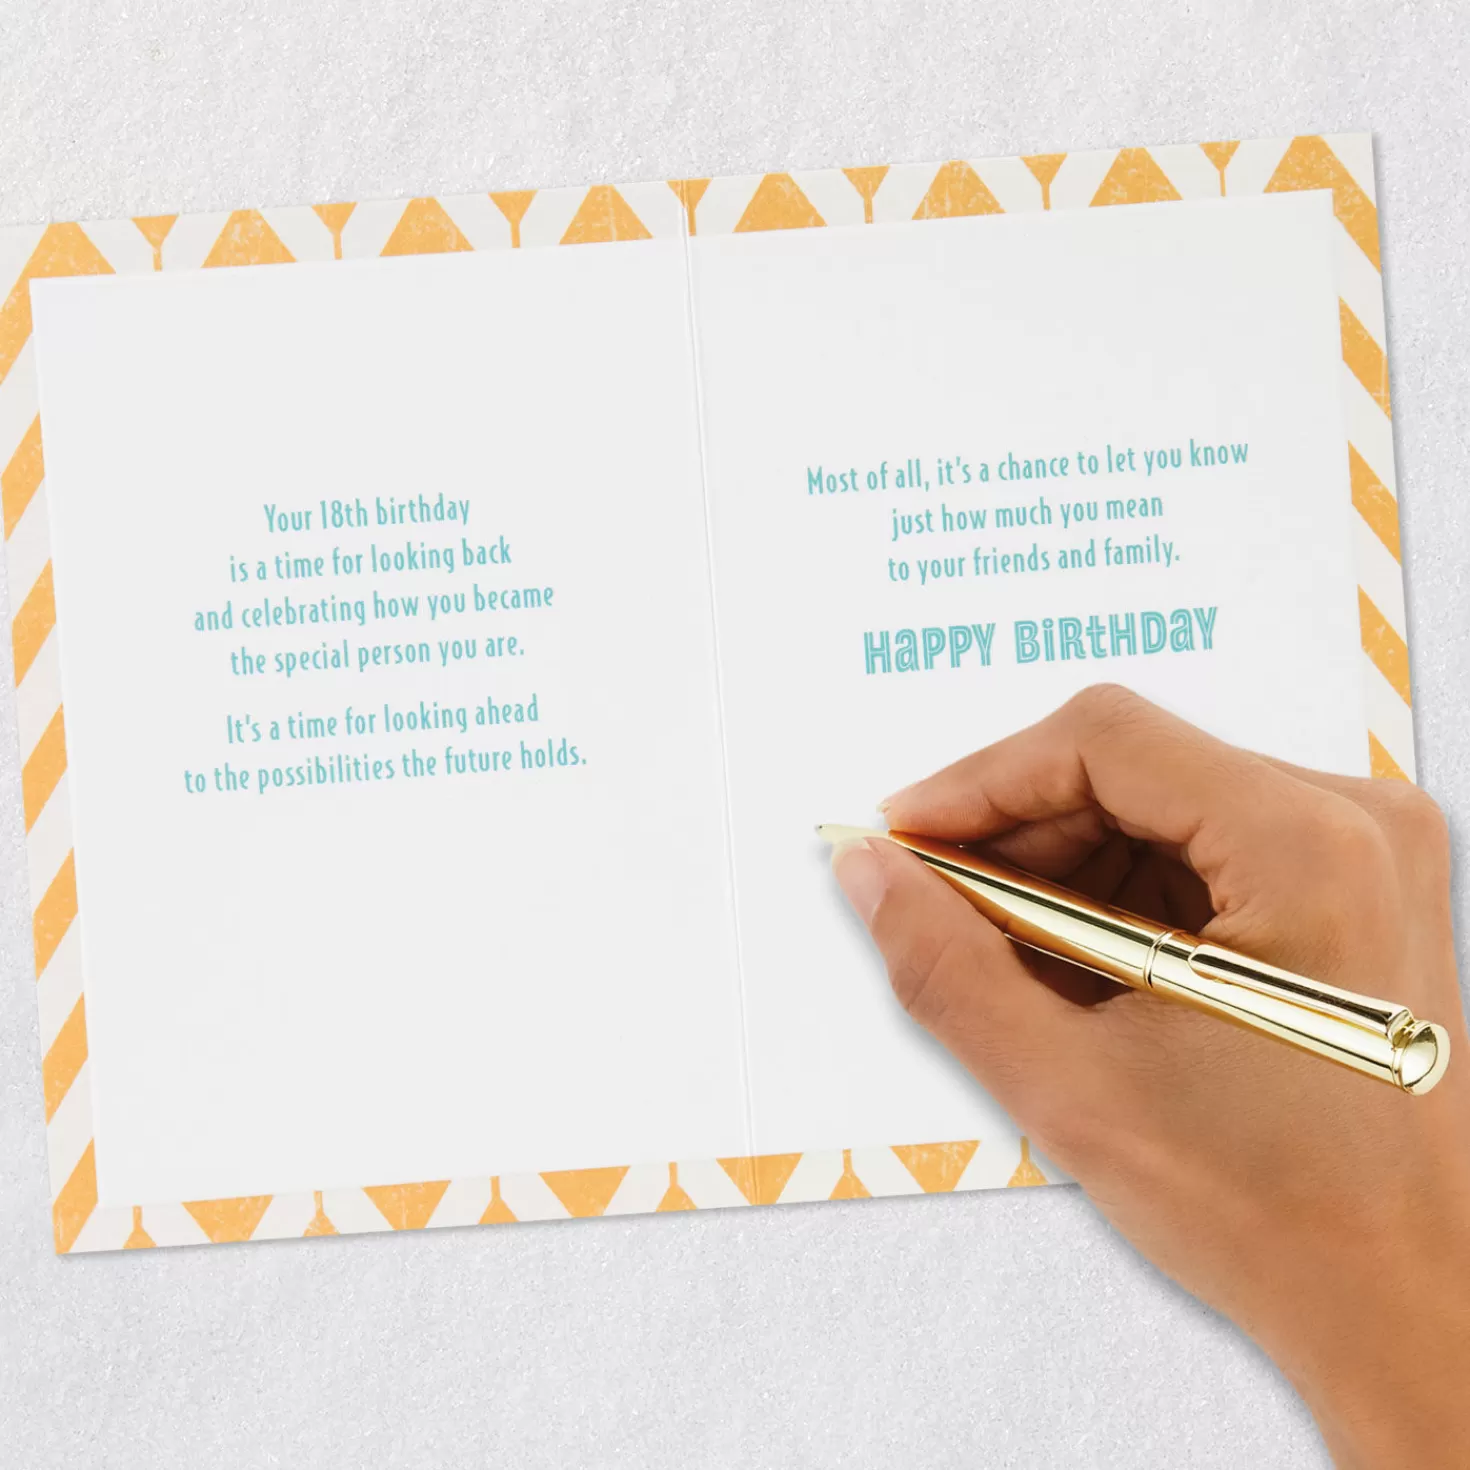 Your 18th birthday
is a time for looking back
and celebrating how you became
the special person you are.
It's a time for looking ahead
to the possibilities the future holds.
Most of all, it's a chance to let you know
just how much you mean
to your friends and family.
HaPPY BiRtHDaY